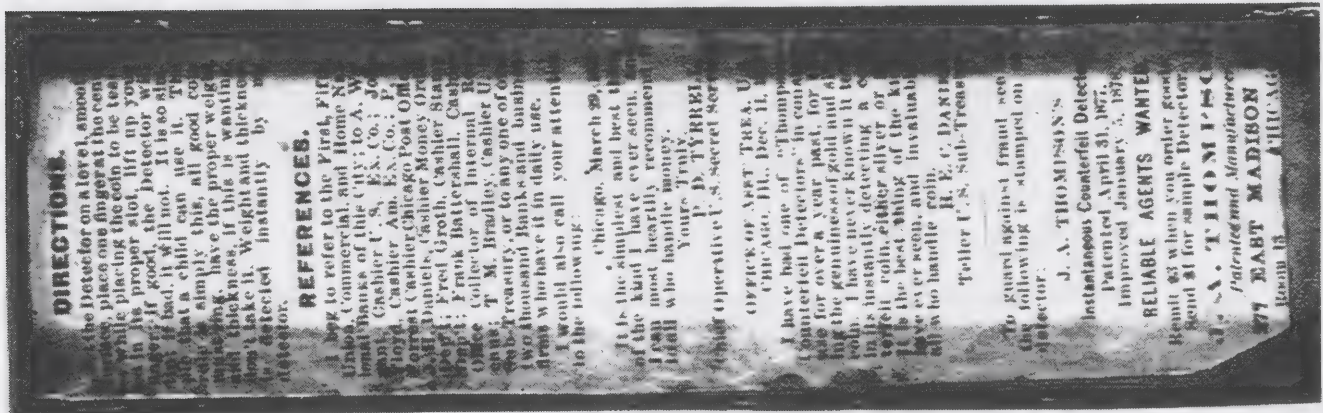 DIRECTIONS.
the Detector on a level, smoot
place one finger at the cen
while placing the coin to be tes
in its proper slot, lift up you
finger; if good, the Detector w
bad, it will not. It is so si
that a child can use it. Th
simply this, all good co
have the proper weigh
and thickness, if this is wantin
don't take it. Weight and thicknes
detected instantly by
detector.
REFERENCES.
I beg to refer to the First, Fift
Union, Commercial, and Home Na
tional Banks of this City; to A. W
Cashier U. S. Ex. Co.; Jo
Floyd, Cashier Am. Ex. Co.; P.
Cashier Chicago Post Offic
Daniels, Cashier Money Ord
Fred Groth, Cashier Stam
Frank Battershall, Cash
Office Collector of Internal R
T. M. Bradley, Cashier U
Sub-Treasury, or to any one of o
two thousand Banks and busin
who have it in daily use.
I would also call your attentio
to the following:
Chicago, March 29,
It is the simplest and best th
of the kind I have ever seen.
I can most heartily recommend
to all who handle money.
Yours Truly,
P. D. TYRRELL
Chief Operative U.S. Secret Serv
OFFICE OF ASST. TREA. U
CHICAGO, Ill., Dec. 11,
I have had one of "Thomps
Counterfeit Detectors" in con
use for over a year past, for
ing the genuineness of gold and sil
coin. I have never known it to
in its instantly detecting a c
coin, either silver or
It is the best thing of the ki
have ever seen, and invaluabl
all who handle coin.
H. C. DANIE
Teller U.S. Sub-Treas
To guard against fraud see
the following is stamped on
Detector:
J. A. THOMPSON'S
Instantaneous Counterfeit Detecto
Patented April 31, 1877.
Improved January 5, 187
RELIABLE AGENTS WANTED
when you order goods
Send $1 for sample Detector
A. THOMPSO
Patent and Manufacturer
277 EAST MADISON
Room 13 CHICAG